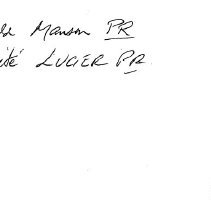 Manson PR
ité LUCIER PR